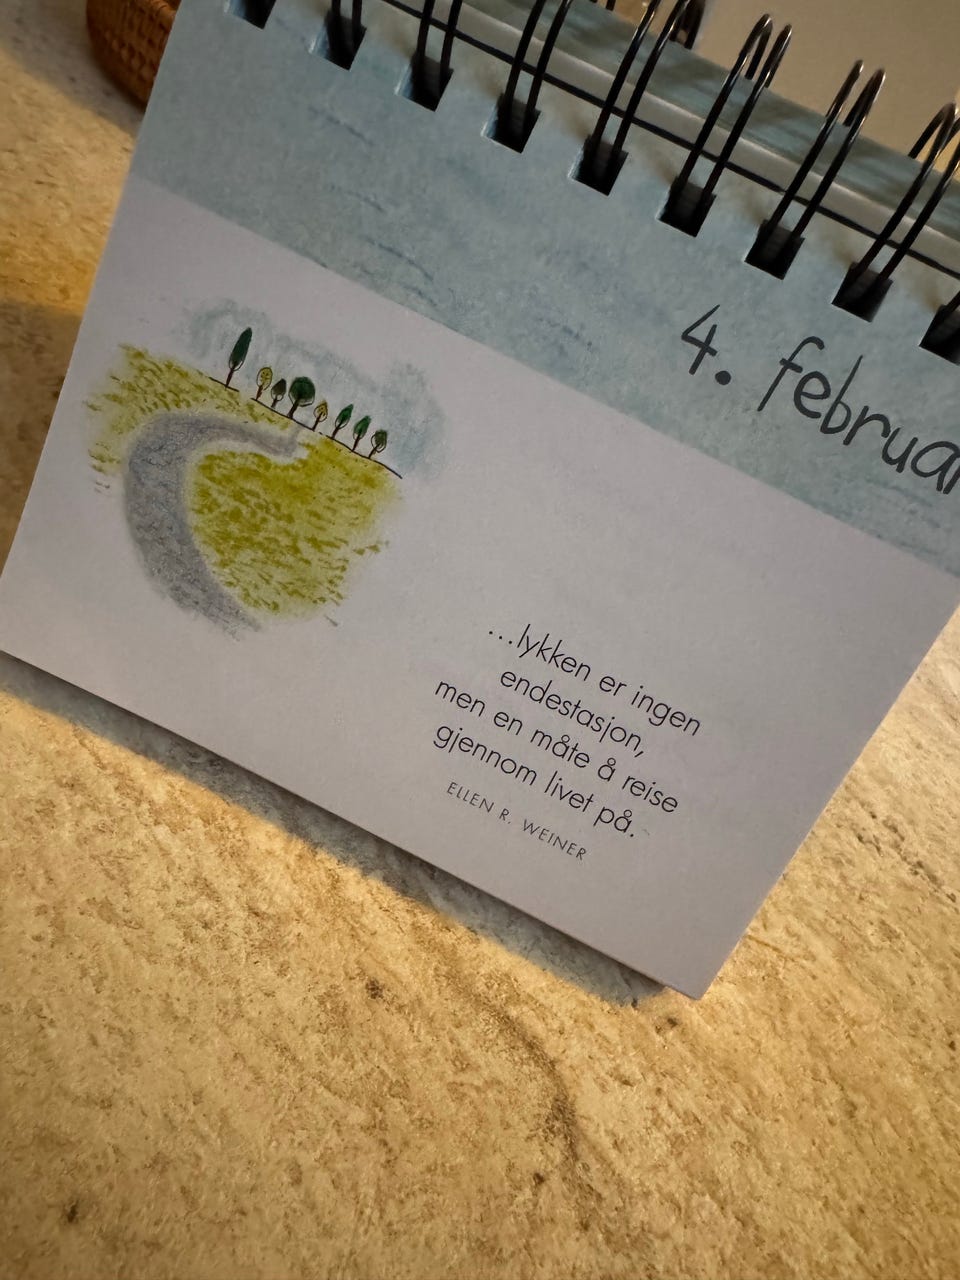 4. februar
...lykken er ingen
endestasjon,
men en måte å reise
gjennom livet på.
ELLEN R. WEINER